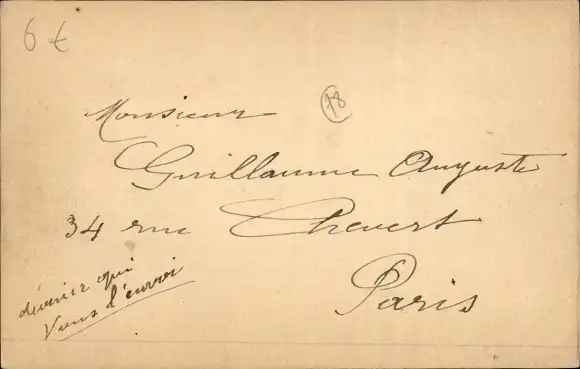 6 €
78
Monsieur
Guillaume Auguste
34 rue Chevert
Paris
devenir qui
Vous l'envoi